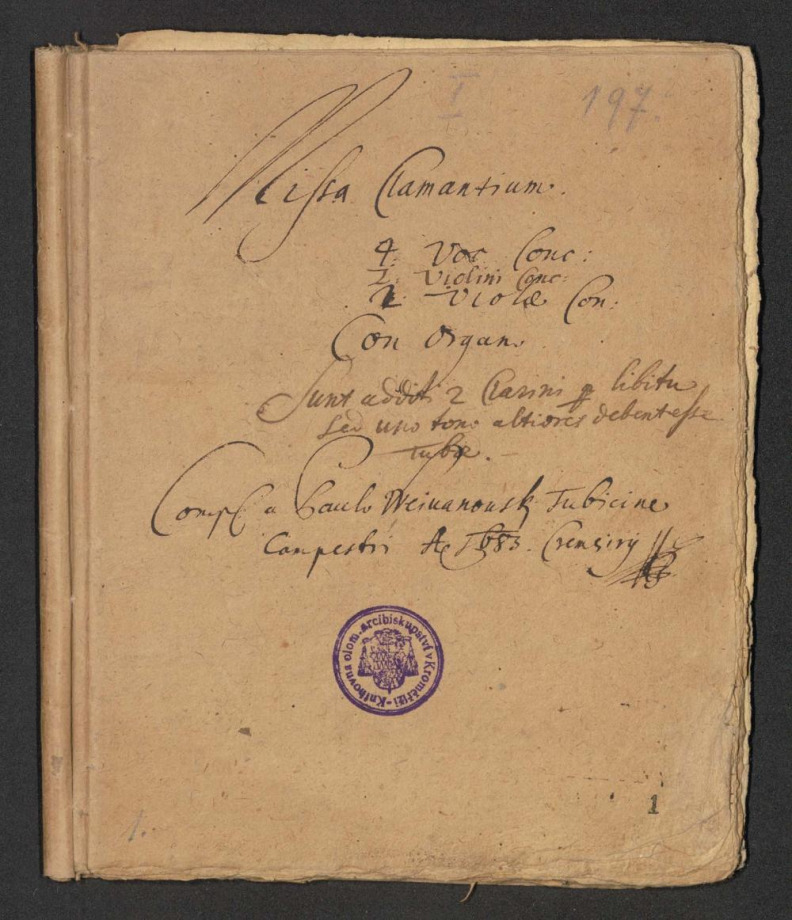 I 197.
Missa Clamantium.
4. Voc Conc:
2. Violini Conc:
2. Violæ Con:
Con Organ.
Sunt additi 2 Clarini p libitu
sed uno tono altiores debent esse
tubæ.
Comp. a Paulo Weiuanousky Tubicine
Campestri Ao 1683. Cremsiry
Knihovna olom. arcibiskupství v Kroměříži
1
1.